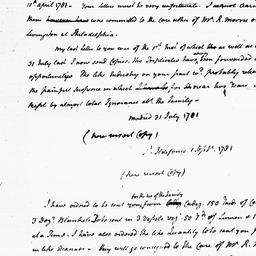 10th april 1781. Your letters must be very unfortunate. I cannot
them was committed to the care either of Mr. R. Morris or
Livingston at Philadelphia.
My last letter to you was of the 1st of which as well as
31 July last I now send Copies. the Duplicates have been forwarded
opportunities. The like Industry on your part wd. probably
the painful suspence in which for near two Years
kept by almost total Ignorance of the Family.
Madrid 31 July 1781
(here insert Copy)
St. Ildefonso 1 Septr. 1781
(here insert copy)
for the use of the Family
I have ordered to be sent you from Cadiz. 150 Yards of
3 Doz. Blankets to be sent in 3 Parcels vizt. 50 Yds. of Linnen &
at a Time. I have also ordered the like Quantity to be sent you
in like Manner. They will go consigned to the Care of Mr. R.